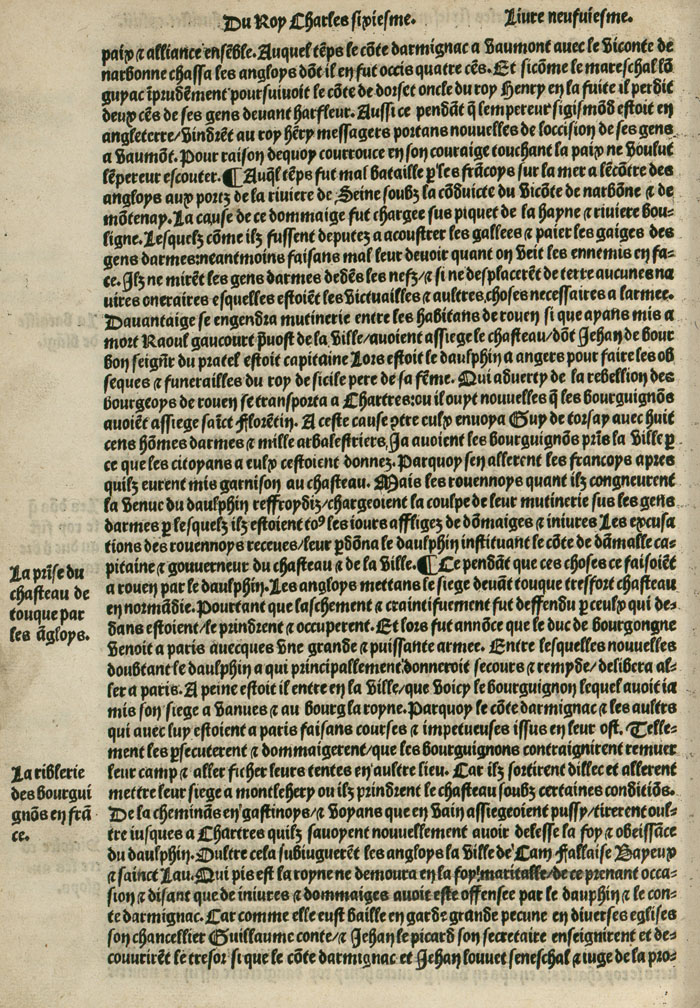 Du Roy Charles sixiesme. Livre neufuiesme.
paix ⁊ alliance ensẽble. Auquel tẽps le cõte darmignac a Vaumont avec le Viconte de
narbonne chassa les angloys dõt il en fut occis quatre cẽs. Et sicõme le mareschal lõ
guyac ĩprudẽment poursuivoit le cõte de dorset oncle du roy Henry en la fuite il perdit
deux cẽs de ses gens devant harfleur. Aussi ce pendãt q̃ lempereur sigismõd estoit en
angleterre/vindrẽt au roy hẽry messagers portans nouvelles de loccision de ses gens
a Vaumõt. Pour raison dequoy courrouce en son couraige touchant la paix ne voulut
lẽpereur escouter. ¶ Auq̃l tẽps fut mal bataille p̱ les frãcoys sur la mer a lẽcõtre des
angloys aux portz de la riviere de Seine soubz la cõduicte du Vicõte de narbõne ⁊ de
mõtenay. La cause de ce dommaige fut chargee sus piquet de la hayne ⁊ riviere bou-
ligne. Lesquelz cõme ilz fussent deputez a acoustrer les gallees ⁊ paier les gaiges des
gens darmes: neantmoins faisans mal leur devoir quant on veit les ennemis en fa-
ce. Ilz ne mirẽt les gens darmes dedẽs les nefz/⁊ si ne desplacerẽt de terre aucunes na
vires oneraires esquelles estoiẽt les victuailles ⁊ aultres choses necessaires a larmee.
Davantaige se engendra mutinerie entre les habitans de rouen si que ayans mis a
mort Raoul gaucourt p̃vost de la ville/avoient assiege le chasteau/dõt Jehan de bour
bon seignr̃ du pratel estoit capitaine Lors estoit le daulphin a angers pour faire les ob
seques ⁊ funerailles du roy de sicile pere de sa fẽme. Qui adverty de la rebellion des
bourgeoys de rouen se transporta a Chartres: ou il ouyt nouvelles q̃ les bourguignõs
avoiẽt assiege saĩct Florẽtin. A ceste cause ꝯtre eulx envoya Guy de torsay avec huit
cens hõmes darmes ⁊ mille arbalestriers, Ja avoient les bourguignõs prĩs la ville p̱
ce que les citoyans a eulx cestoient donnez. Parquoy sen allerent les francoys apres
quilz eurent mis garnison au chasteau. Mais les rouennoys quant ilz congneurent
la venue du daulphin reffroydiz/chargeoient la coulpe de leur mutinerie sus les gens
darmes p̱ lesquelz ilz estoient toꝰ les iours affligez de dõmaiges ⁊ iniures Les excusa
tions des rouennoys receues/leur p̱dõna le daulphin instituant le cõte de dãmalle ca-
pitaine ⁊ gouverneur du chasteau ⁊ de la ville. ¶ Ce pendãt que ces choses ce faisoiẽt
a rouen par le daulphin. Les angloys mettans le siege devãt touque tresfort chasteau
en normãdie. Pourtant que laschement ⁊ craintifuement fut deffendu p̱ ceulx qui de-
dans estoient/le prindrent ⁊ occuperent. Et lors fut annõce que le duc de bourgongne
venoit a paris avecques une grande ⁊ puissante armee. Entre lesquelles nouvelles
doubtant le daulphin a qui principallement donneroit secours ⁊ remyde/delibera al-
ler a paris. A peine estoit il entre en la ville/que voicy le bourguignon lequel avoit ia
mis son siege a Vanues ⁊ au bourg la royne. Parquoy le cõte darmignac ⁊ les aultrs
qui avec luy estoient a paris faisans courses ⁊ impetueuses issus en leur ost. Telle-
ment les p̱secuterent ⁊ dommaigerent/que les bourguignons contraignirent remuer
leur camp ⁊ aller ficher leurs tentes en aultre lieu. Car ilz sortirent dillec et allerent
mettre leur siege a montlehery ou ilz prindrent le chasteau soubz certaines conditiõs.
De la cheminãs en gastinoys/⁊ voyans que en vain assiegeoient pussy/tirerent oul-
tre iusques a Chartres quilz savoyent nouvellement avoir delesse la foy ⁊ obeissãce
du daulphin. Oultre cela subiuguerẽt les angloys la ville de Cam Fallaise Bayeux
⁊ sainct Lau. Qui pis est la royne ne demoura en la foy maritalle/de ce prenant occa-
sion ⁊ disant que de iniures ⁊ dommaiges avoit este offensee par le dauphin ⁊ le con-
te darmignac. Car comme elle eust baille en garde grande pecune en diverses eglises
son chancellier Guillaume conte/⁊ Jehan le picard son secretaire enseignirent et de-
couvrirẽt le tresor si que le cõte darmignac et Jehan louvet seneschal ⁊ iuge de la pro-
La prĩse du
chasteau de
touque par
les ãgloys.
La riblerie
des bourgui
gnõs en frã
ce.